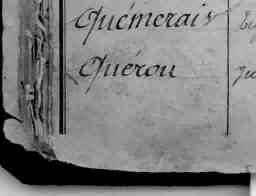 Quémerais
Quérou